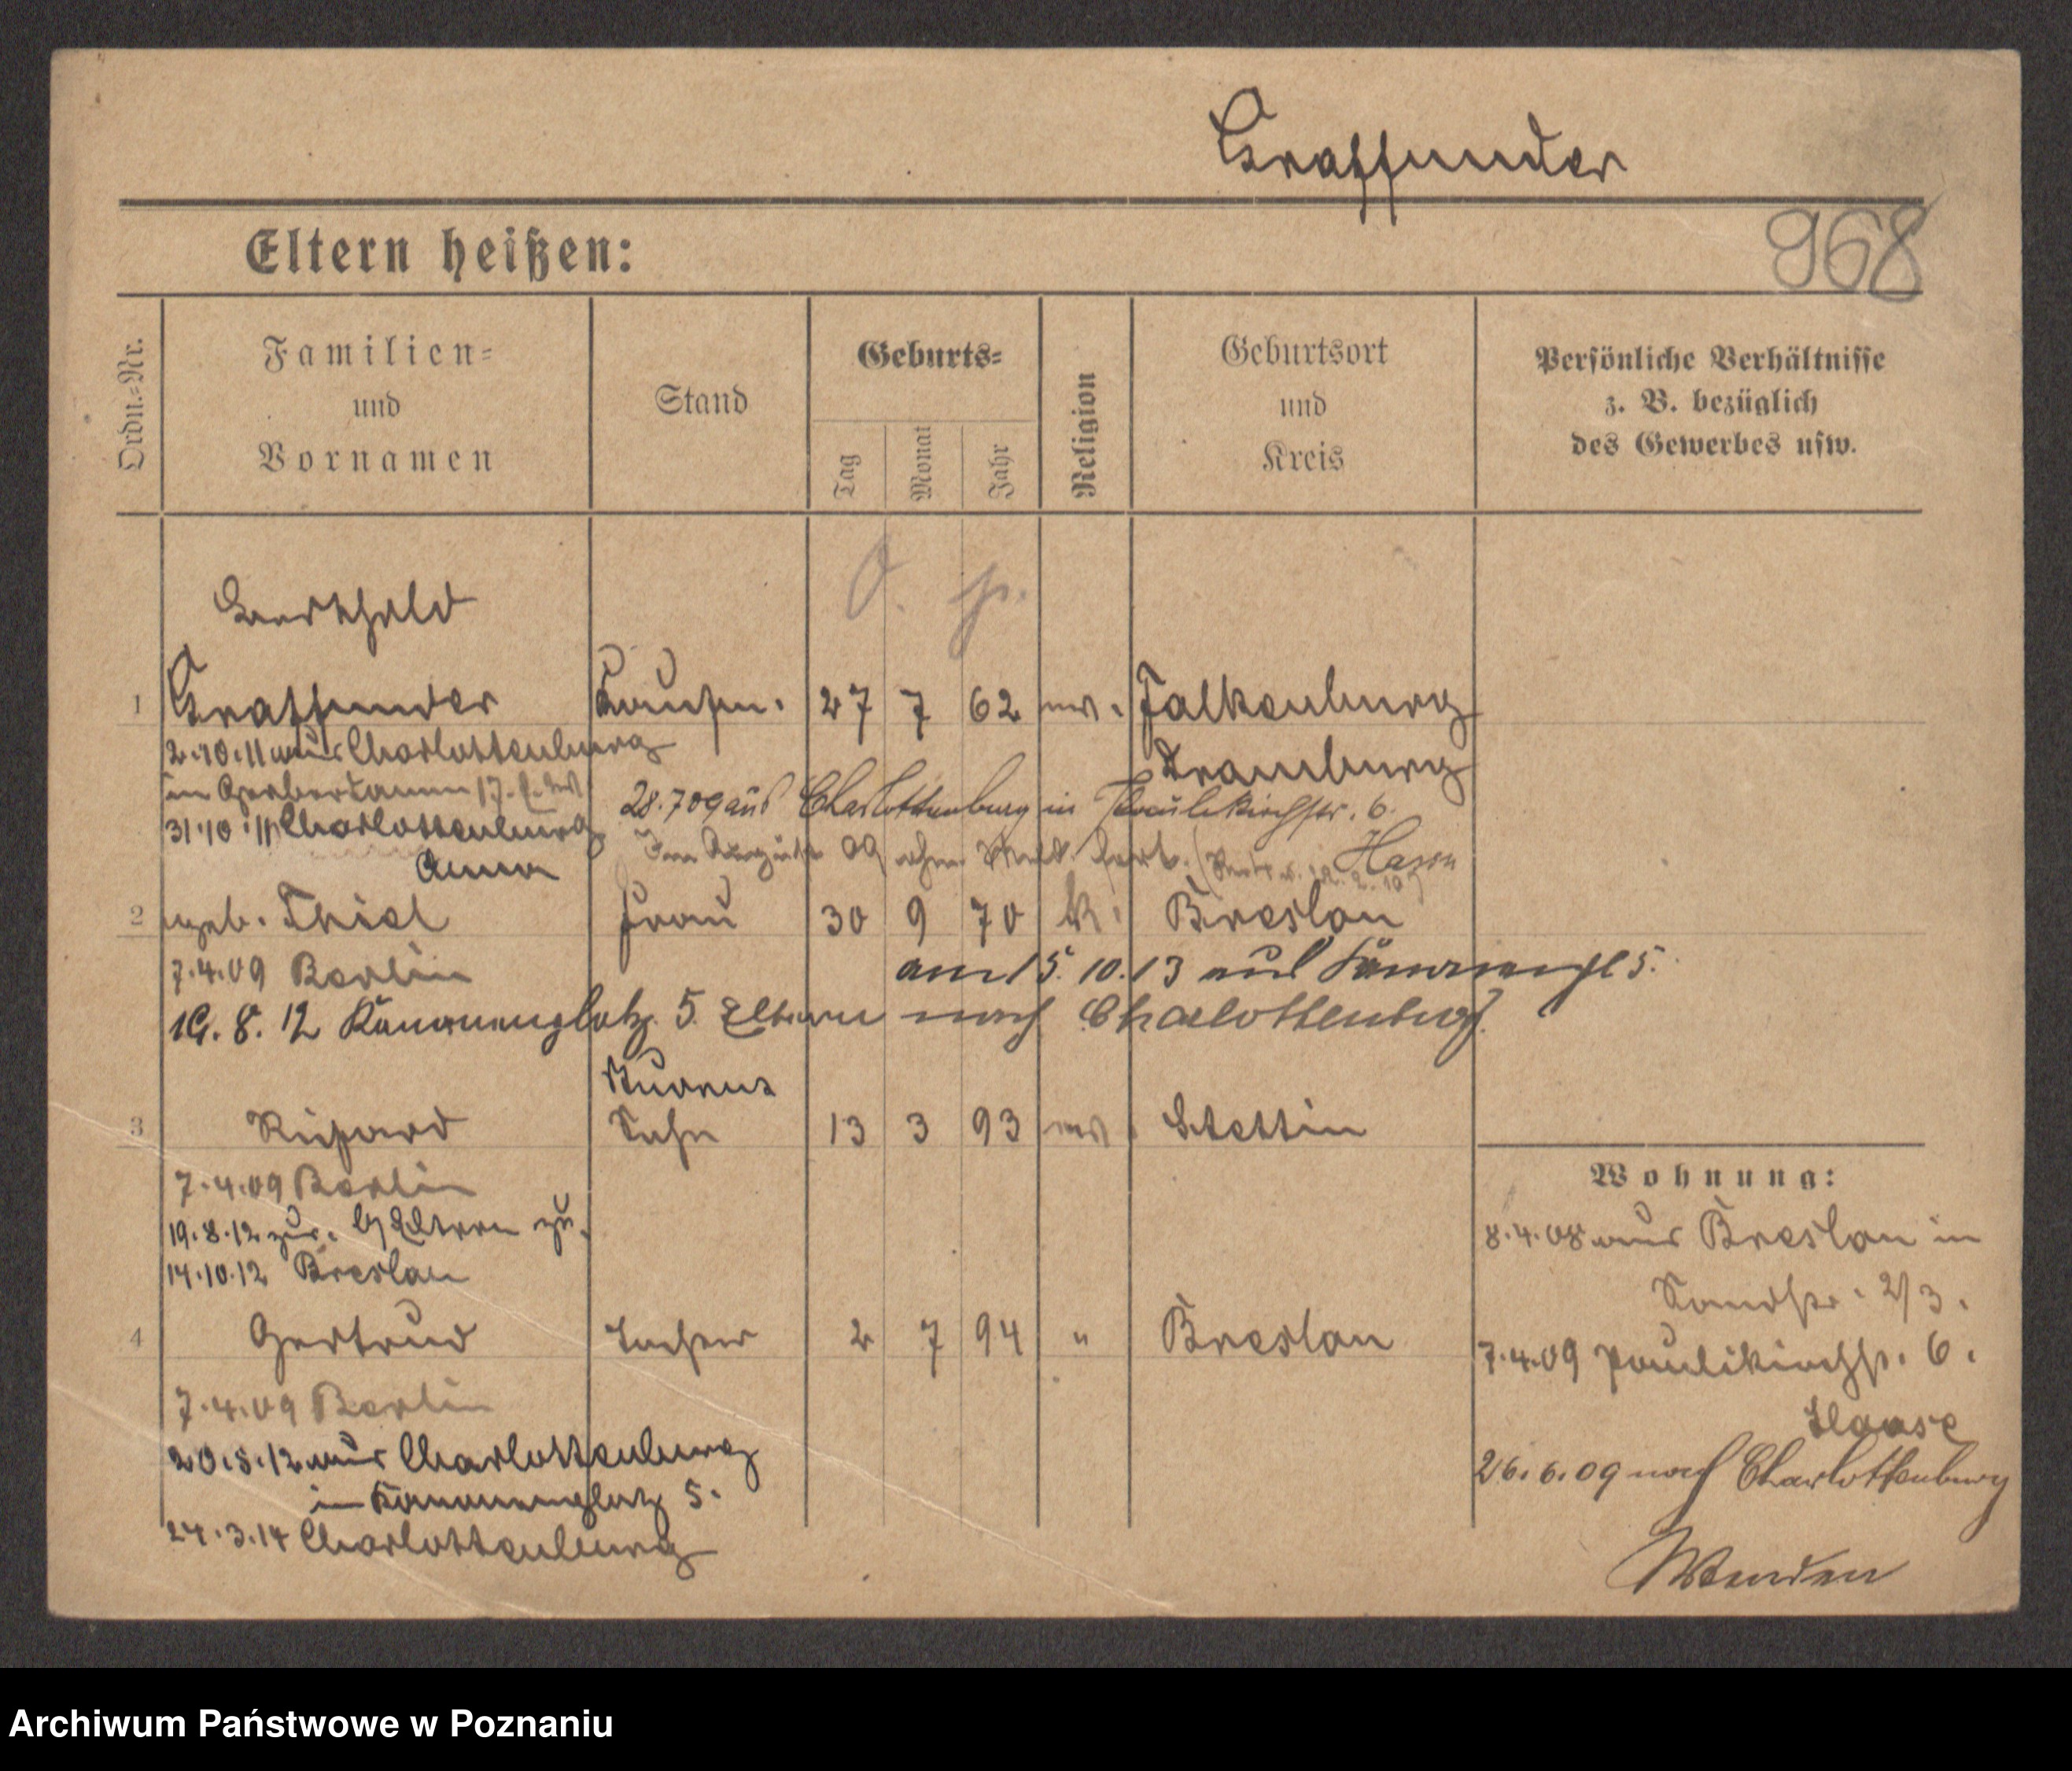 Graffunder
968
Eltern heißen:
Ordn.=Nr.
Familien=
und
Vornamen
Stand
Geburts=
Tag
Monat
Jahr
Religion
Geburtsort
und
Kreis
Persönliche Verhältnisse
z. B. bezüglich
des Gewerbes usw.
Berthold
1 Graffunder Kaufm. 27 7 62 ev. Falkenburg
2.10.11 aus Charlottenburg
Dramburg
in Gerberdamm 17.
28.7 09 aus Charlottenburg in Paulikirchstr. 6.
31.10.11 Charlottenburg
09 ohne
Anna
2 geb. Thiel Frau 30 9 70 k. Breslau
7.4.09 Berlin
am 15.10.13 aus 5.
19.8.12 Kanonenplatz 5. Eltern nach Charlottenburg
3 Richard Sohn 13 3 93 ev. Stettin
7.4.09 Berlin
Wohnung:
19.8.12 zur. Eltern
8.4.08 aus Breslau in
14.10.12 Breslau
2/3.
4 Gertrud Tochter 2 7 94 " Breslau
7.4.09 Paulikirchstr. 6.
7.4.09 Berlin
Haase
20.8.12 aus Charlottenburg
26.6.09 nach Charlottenburg
in Kanonenplatz 5.
24.3.14 Charlottenburg
Archiwum Państwowe w Poznaniu